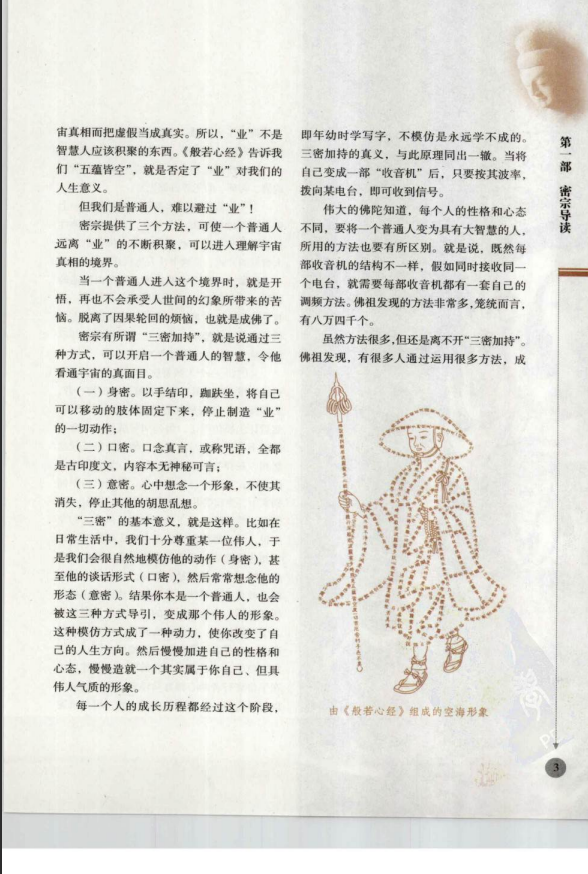 宙真相而把虚假当成真实。所以，“业”不是
智慧人应该积聚的东西。《般若心经》告诉我
们“五蕴皆空”，就是否定了“业”对我们的
人生意义。
但我们是普通人，难以避过“业”！
密宗提供了三个方法，可使一个普通人
远离“业”的不断积聚，可以进入理解宇宙
真相的境界。
当一个普通人进入这个境界时，就是开
悟，再也不会承受人世间的幻象所带来的苦
恼。脱离了因果轮回的烦恼，也就是成佛了。
密宗有所谓“三密加持”，就是说通过三
种方式，可以开启一个普通人的智慧，令他
看通宇宙的真面目。
（一）身密。以手结印，跏趺坐，将自己
可以移动的肢体固定下来，停止制造“业”
的一切动作；
（二）口密。口念真言，或称咒语，全都
是古印度文，内容本无神秘可言；
（三）意密。心中想念一个形象，不使其
消失，停止其他的胡思乱想。
“三密”的基本意义，就是这样。比如在
日常生活中，我们十分尊重某一位伟人，于
是我们会很自然地模仿他的动作（身密），甚
至他的谈话形式（口密），然后常常想念他的
形态（意密）。结果你本是一个普通人，也会
被这三种方式导引，变成那个伟人的形象。
这种模仿方式成了一种动力，使你改变了自
己的人生方向。然后慢慢加进自己的性格和
心态，慢慢造就一个其实属于你自己、但具
伟人气质的形象。
每一个人的成长历程都经过这个阶段，
即年幼时学写字，不模仿是永远学不成的。
三密加持的真义，与此原理同出一辙。当将
自己变成一部“收音机”后，只要按其波率，
拨向某电台，即可收到信号。
伟大的佛陀知道，每个人的性格和心态
不同，要将一个普通人变为具有大智慧的人，
所用的方法也要有所区别。就是说，既然每
部收音机的结构不一样，假如同时接收同一
个电台，就需要每部收音机都有一套自己的
调频方法。佛祖发现的方法非常多，笼统而言，
有八万四千个。
虽然方法很多，但还是离不开“三密加持”。
佛祖发现，有很多人通过运用很多方法，成
由《般若心经》组成的空海形象
第一部 密宗导读
3